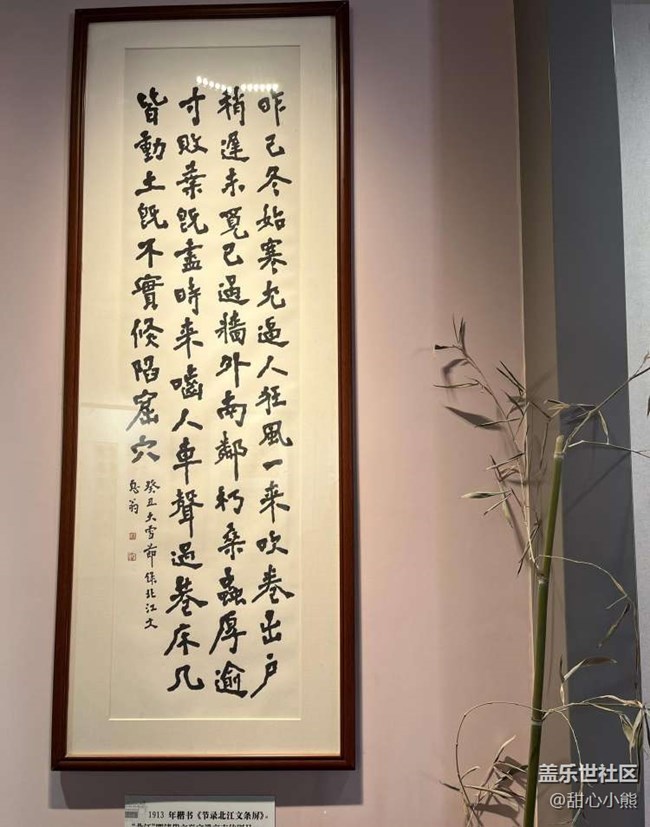 昨已冬始寒尤逼人狂風一来吹卷出户
稍遲未覓已過牆外南鄰朽桑蟲厚逾
寸敗葉既盡時来嚙人車聲過巷床几
皆動土既不實倏陷窟穴
癸丑大雪節錄北江文
息翁
1913 年楷书《节录北江文条屏》。
盖乐世社区
@甜心小熊